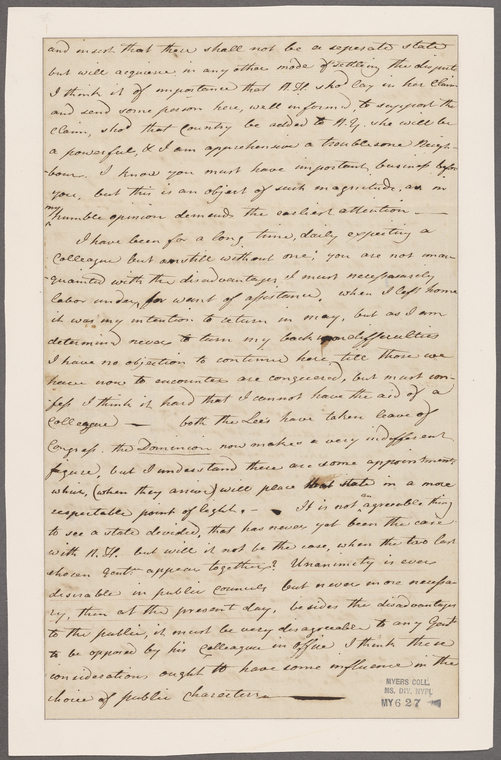 and insist that there shall not be a seperate state
but will acquiesce in any other mode of settling the dispute
I think it of importance that N.H. shod lay in her Claim
and send some person here, well inform'd, to support the
Claim, shod that Country be added to N.Y. she will be
a powerful, & I am apprehensive a troublesome Neigh-
-bour. I know you must have important business before
you, but this is an object of such magnitude, as in
my humble opinion demands the earliest attention —
I have been for a long time, daily expecting a
Colleague but am still without one; you are not unac
quainted with the disadvantages I must necessarely
labor under, for want of assistance, when I left home
it was my intention to return in may, but as I am
determined never to turn my back upon difficulties
I have no objection to continue here till those we
have now to encounter are conquered, but must con-
fess I think it hard that I cannot have the aid of a
Colleague — both the Lees have taken leave of
Congress, the Dominion now makes a very indifferent
figure, but I understand there are some appointments
which, (when they arrive) will place that state in a more
respectable point of light. — It is not an agreeable thing
to see a state devided, that has never yet been the case
with N.H. but will it not be the case, when the two last
chosen Gent. appear together? Unanimity is ever
desirable in public Councils but never more necessa-
ry, then at the present day, besides the disadvantages
to the public, it must be very disagreeable to any Gent.
to be opposed by his Colleague in office I think these
considerations ought to have some influence in the
choice of public Characters —
MYERS COLL.
MS. DIV. NYPL
MY 6 27